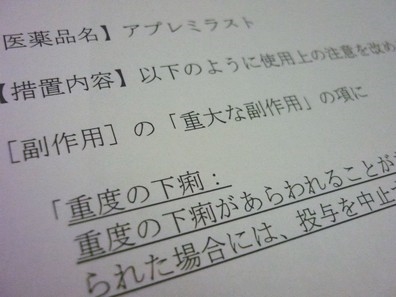 医薬品名】アプレミラスト
【措置内容】以下のように使用上の注意を改め
[副作用]の「重大な副作用」の項に
「重度の下痢：
重度の下痢があらわれることが
られた場合には、投与を中止